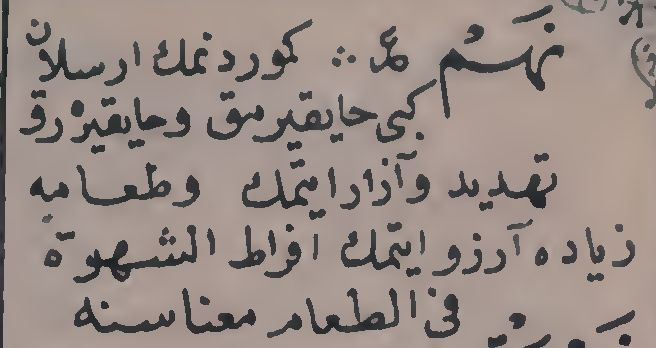 نَهَمْ مّد ∴ كموردنمك ارسلان
كبى حايقيرمق وحايقيره رق
تهديد وآزار ايتمك وطعامه
زياده آرزو ايتمك افراط الشهوة
فى الطعام معناسنه